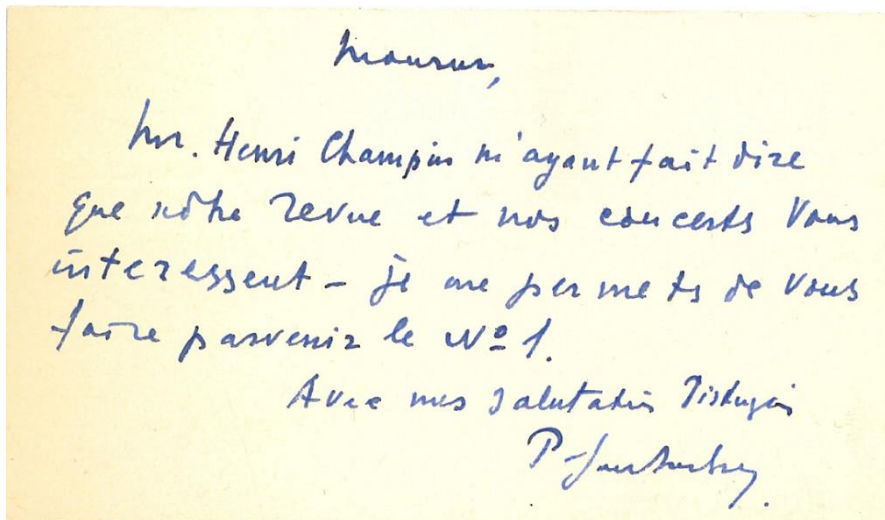 Monsieur,
Mr. Henri Champin m'ayant fait dire
que nôtre revue et nos concerts vous
interessent – je me permets de vous
faire parvenir le Nº 1.
Avec mes salutations distinguées
P.